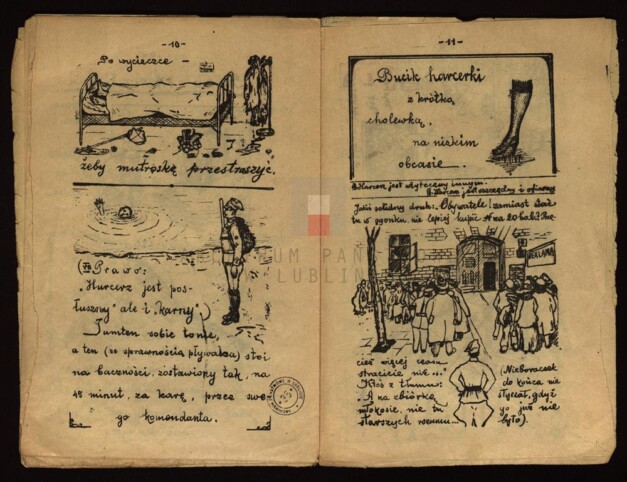 -10-
Po wycieczce -
żeby mutraskę przestraszyć.
(VII Prawo:
"Harcerz jest pos-
łuszny" ale i "karny")
Tamten sobie tonie,
a ten (ze sprawnością pływaka) stoi
na baczność, zostawiony tak, na
45 minut, za karę, przez swe-
go komendanta.
-11-
Bucik harcerki
z krótką
cholewką,
na nizkim
obcasie.
Harcerz jest użyteczny innym.
Harcerz jest oszczędny i ofiarny
Jakiś solidny druh: Obywatele! zamiast stać
tu w ogonku, nie lepiej kupić
REKLAMA
cież więcej czasu
stracicie niż..."
Ktoś z tłumu:
"A na zbiórkę
młokosie, nie tu
starszych
(Nieboraczek
do końca nie
słyszał, gdyż
go już nie
było).
CENTRUM PAN
LUBLIN